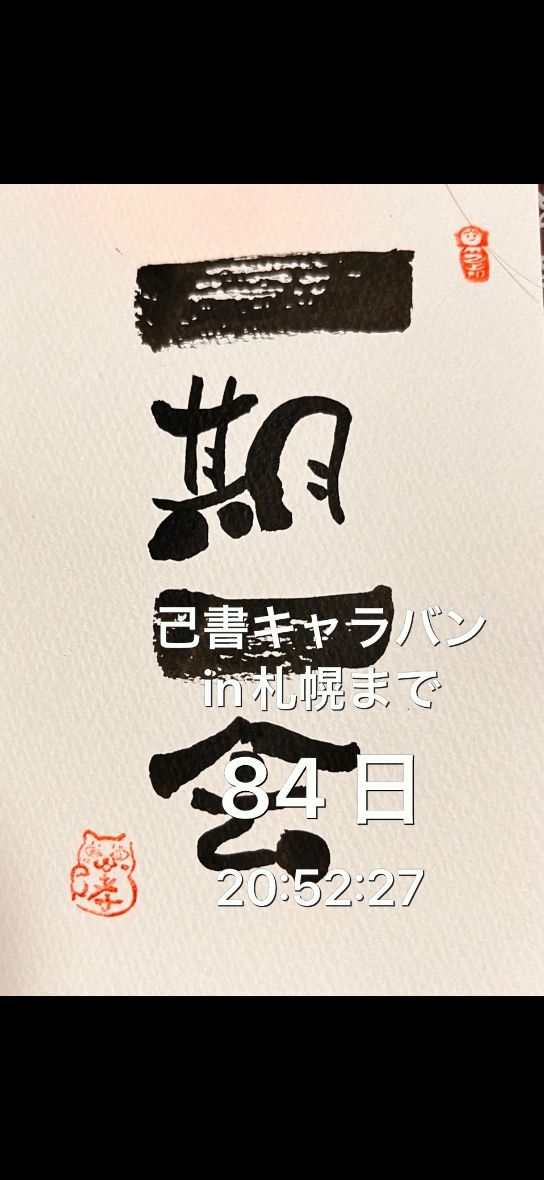 一期一会
己書キャラバン
in札幌まで
84 日
20:52:27
孝